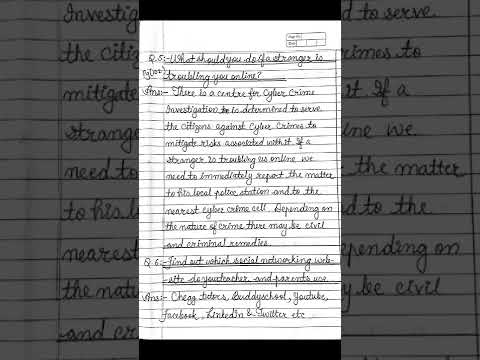 Page No.
Date
Q.5:- What should you do if a stranger is
troubling you online?
Ans:- There is a centre for Cyber Crime
Investigation to is determined to serve
the citizens against Cyber Crimes to
mitigate risks associated with it. If a
stranger is troubling us online we
need to immediately report the matter
to his local police station and to the
nearest cyber crime cell. Depending on
the nature of crime there may be civil
and criminal remedies.
Q.6:- Find out which social networking web-
site do you teacher and parents use
Ans:- Chegg tutors, Buddyschool, Youtube,
Facebook, Linkedin & Twitter etc